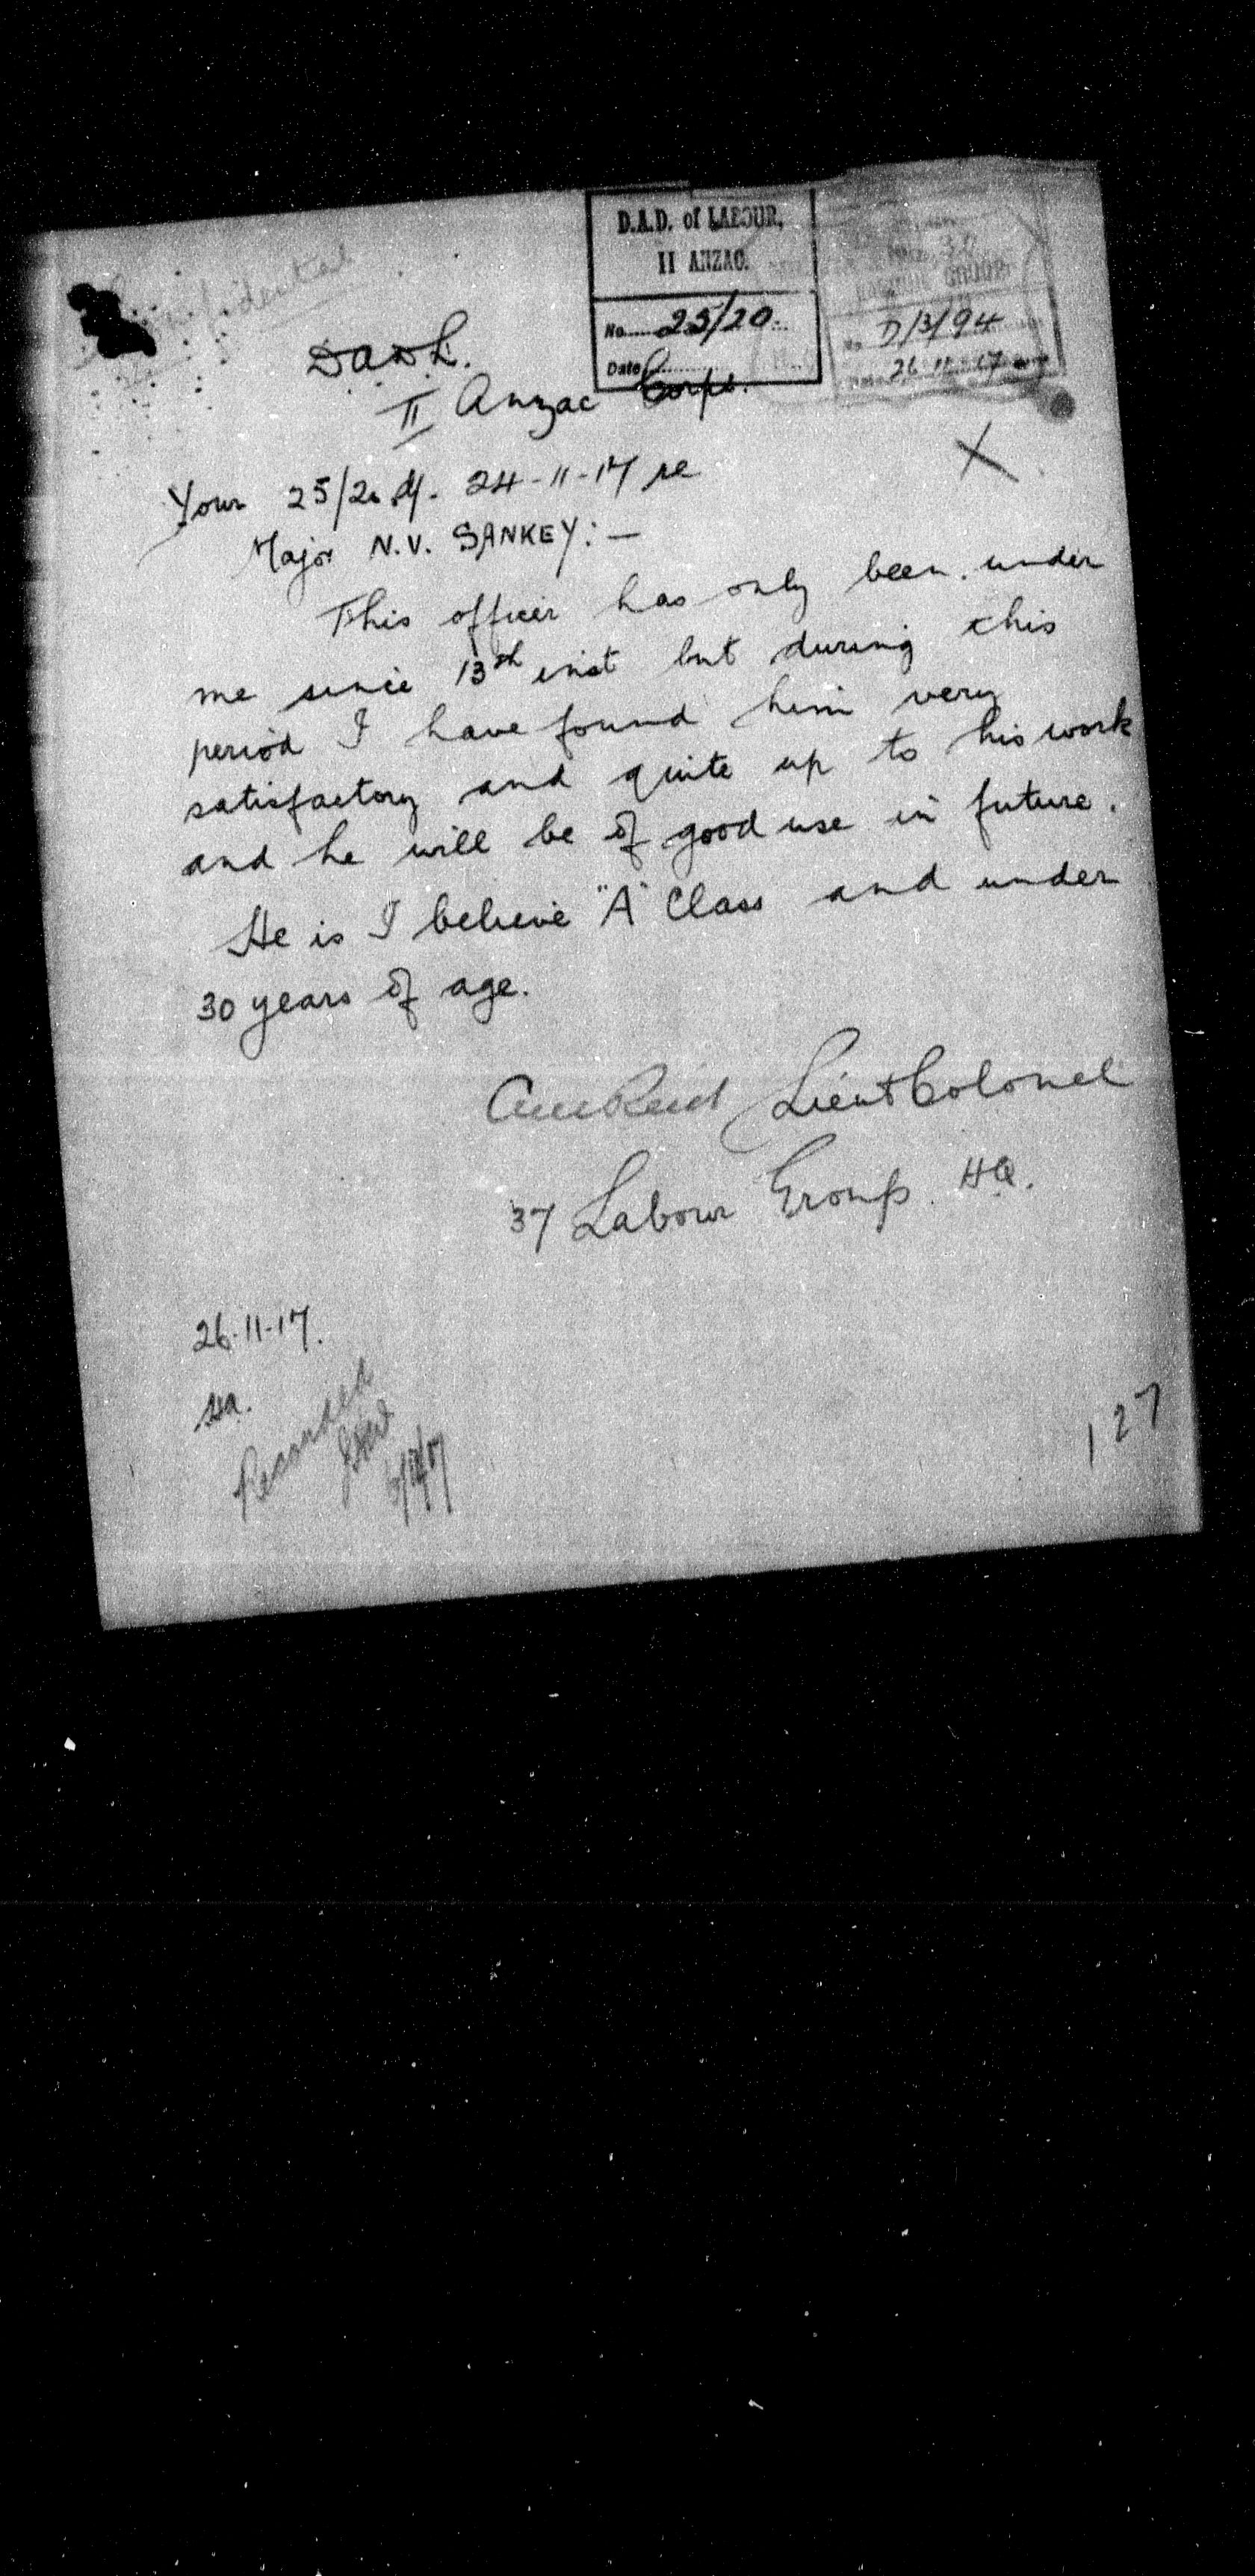 Confidential
D.A.D. of LABOUR,
II ANZAC.
No. 25/20
Date
LABOUR GROUP
No. D/3/94
Date 26.11.17
D.A.D.L.
II Anzac Corps.
X
Your 25/20 d/- 24-11-17 re
Major N.V. SANKEY: —
This officer has only been under
me since 13th inst but during this
period I have found him very
satisfactory and quite up to his work
and he will be of good use in future.
He is I believe "A" Class and under
30 years of age.
Reid Lieut Colonel
37 Labour Group. HQ.
26-11-17.
Recorded
127